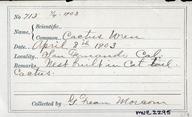 No 713 7/6-403
Name { Scientific,
Common, Cactus Wren
Date, April 8th 1903
Locality, San Fernando Cal.
Remarks, Nest built in Cat tail
Cactus.
Collected by G Frean Morcom
MVZ 2295